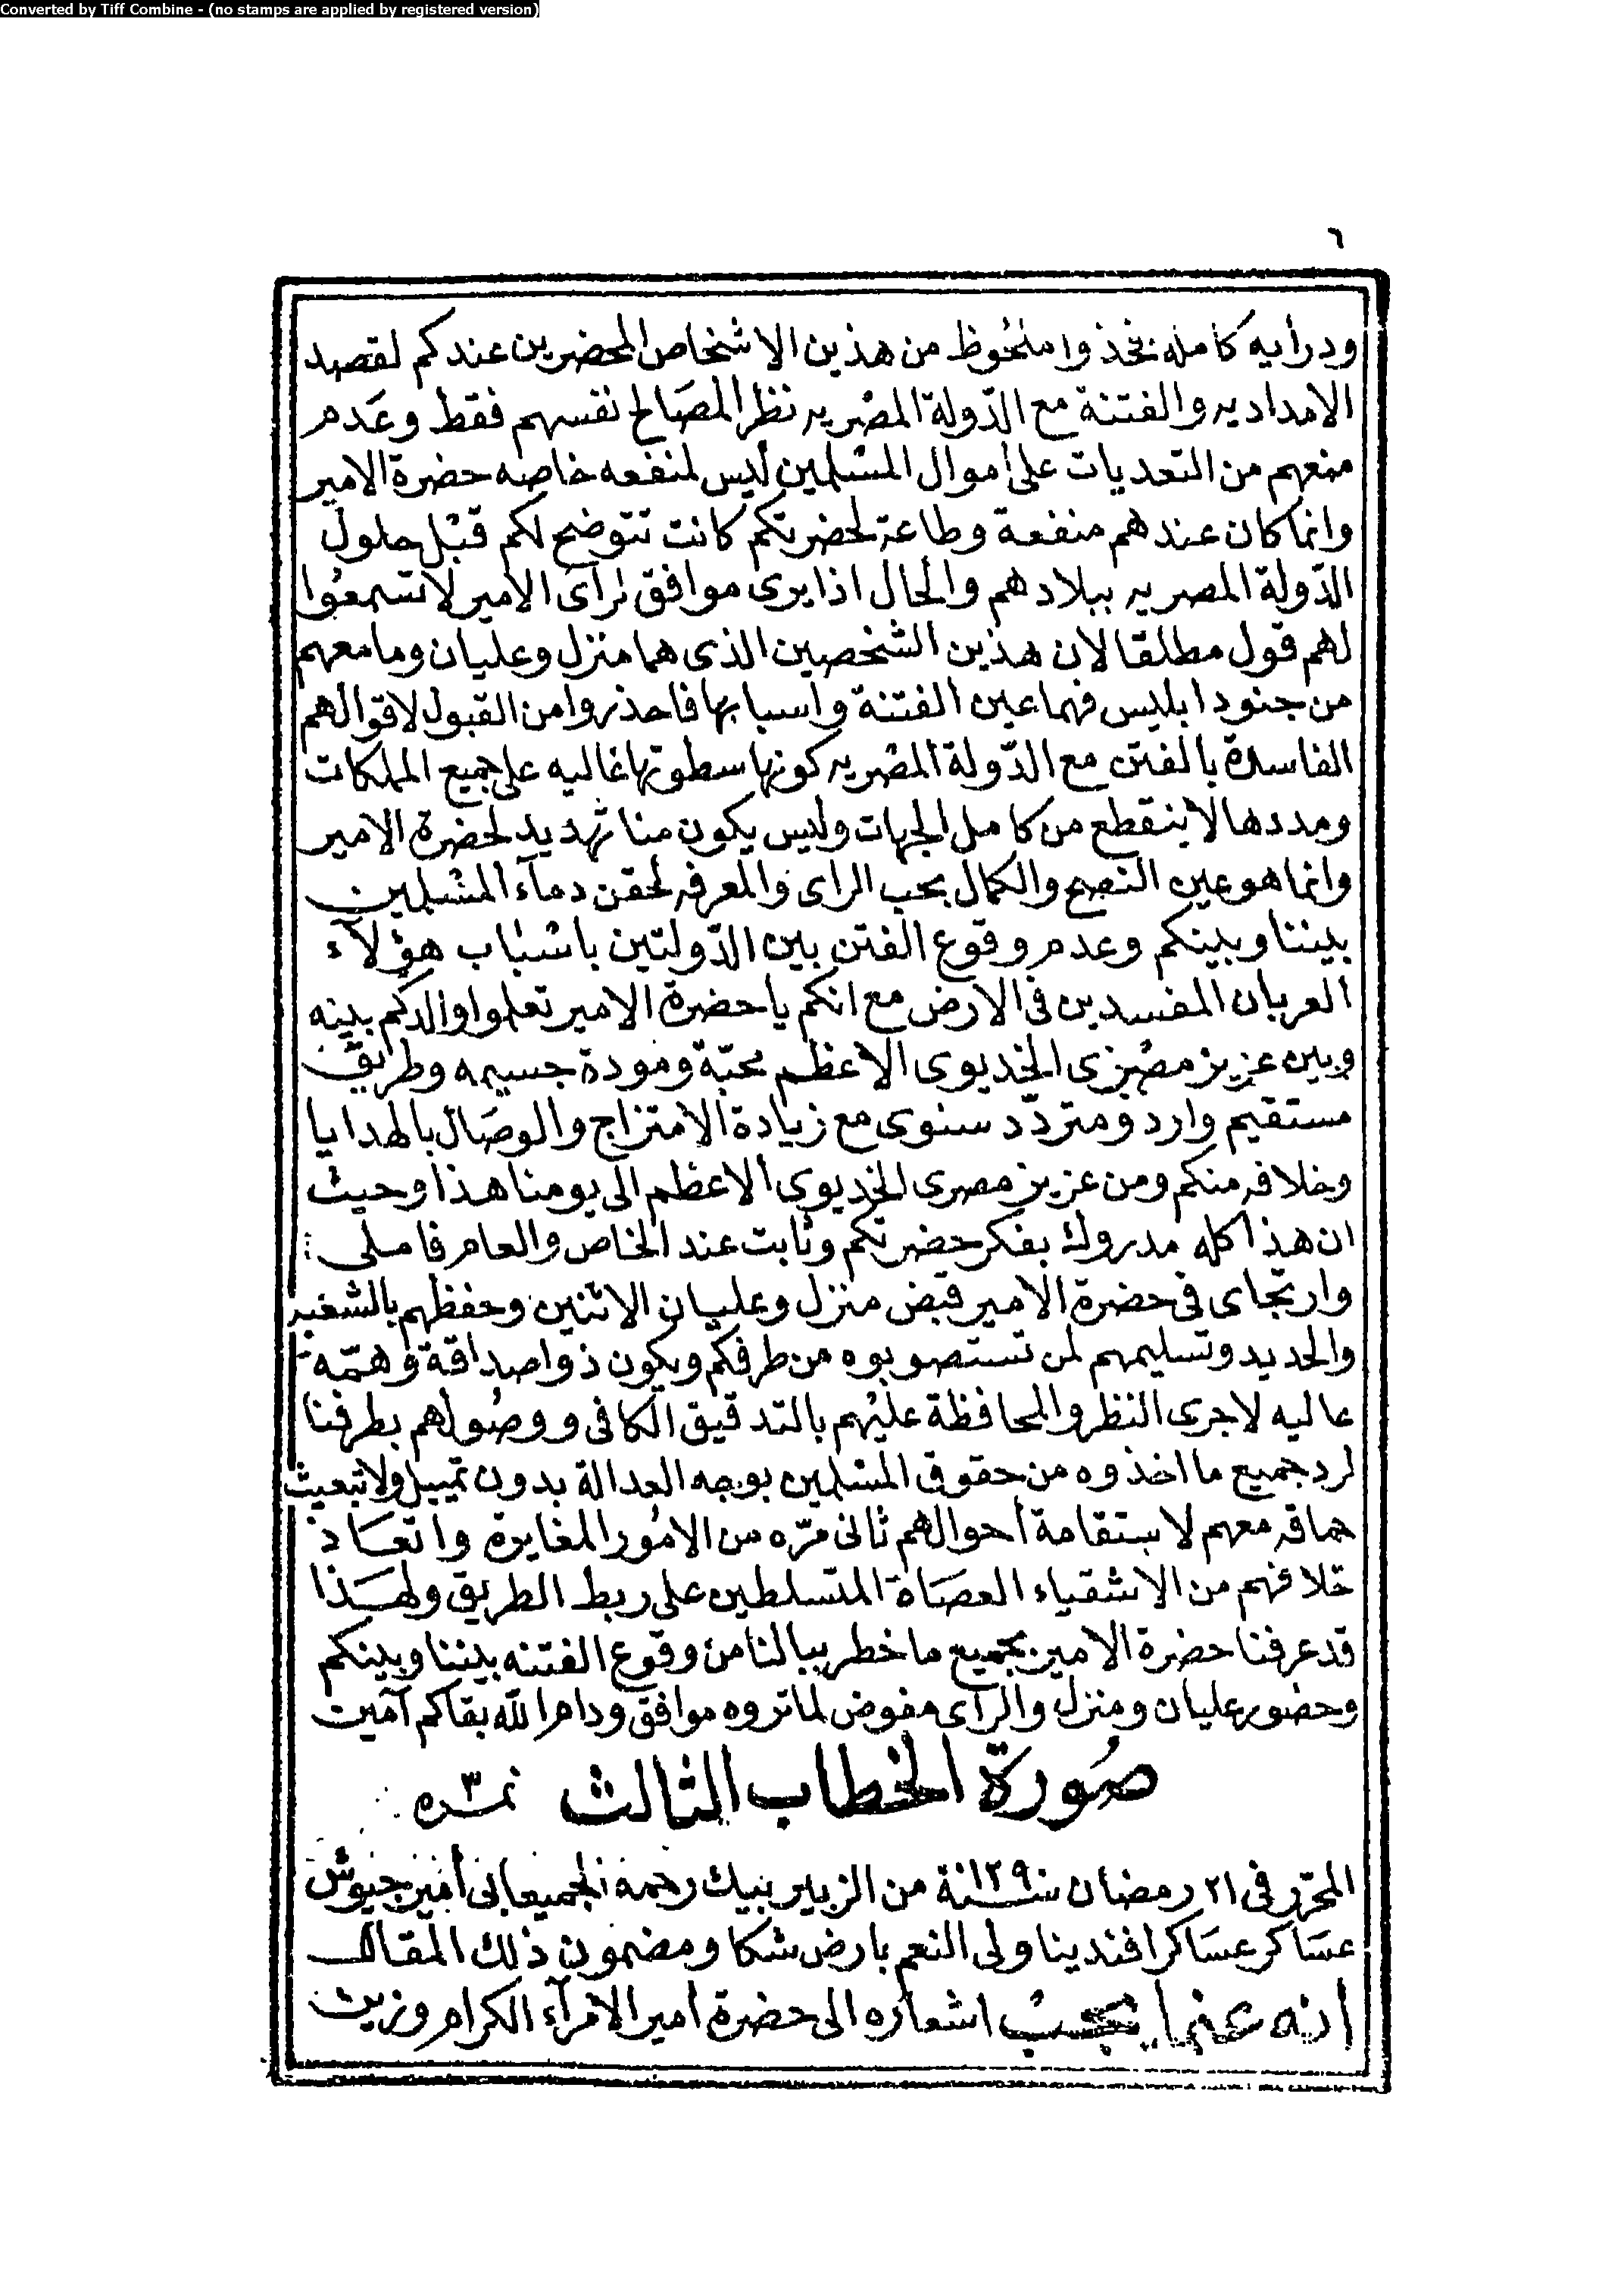 Converted by Tiff Combine - (no stamps are applied by registered version)
٦
ودرايه كامله نخذوا ملحوظ من هذين الاشخاص المحضرين عندكم لقصد
الامداديه والفتنة مع الدّولة المصريه نظر المصَالح نفسهم فقط وعَدم
منعهم من التعديات على أموال المسلمين ليس لمنفعه خاصه حضرة الامير
وانما كان عندهم منفعة وطاعة لحضرتكم كانت تتوضح لكم قبْل حلول
الدّولة المصريه ببلادهم والحال اذا يرى موافق لرآى الامير لا تسمعُوا
لهم قول مطلقا لان هذين الشخصين الذى هما منزل وعليان وما معهم
من جنود ابليس فهما عين الفتنة واسبابها فاحذروا من القبول لاقوالهم
الفاسدة بالفتن مع الدّولة المصريه كونها سطوتها غاليه على جميع الملكات
ومددها لا ينقطع من كامل الجهات وليس يكون منا تهديد لحضرة الامير
وانما هو عين النصح والكمال بحب الراى والمعرفه لحقن دمآء المسلمين
بيننا وبينكم وعدم وقوع الفتن بين الدّولتين باسْبَاب هؤلآء
العربان المفسدين فى الارض مع انكم يا حضرة الامير تعلموا والدكم بينه
وبين عزيز مصرى الخديوى الاعظم محبّة ومودة جسيمه وطريق
مستقيم وارد ومتردّد سنوى مع زيادة الامتزاج والوصَال بالهدايا
وخلافه منكم ومن عزيز مصرى الخديوى الاعظم الى يومنا هذا وحيث
ان هذا كله مدروك بفكر حضرتكم وثابت عند الخاص والعام فاملى
وارتجاى فى حضرة الامير قبض منزل وعليان الاثنين وحفظهم بالشغبه
والحديد وتسليمهم لمن تستصوبوه من طرفكم ويكون ذو اصداقة وهمّه
عاليه لاجرى النظر والمحافظة عليْهم بالتدقيق الكافى ووصُولهم بطرفنا
لرد جميع ما اخذوه من حقوق المسلمين بوجه العدالة بدون تمييل ولا تبعيث
حماقه معهم لاستقامة أحوالهم ثانى مرّه من الامُور المغايرة واتعَاد
خلافهم من الاشقياء العصَاة المتسلطين على ربط الطريق ولهَذا
قد عرفنا حضرة الامير بجميع ما خطر ببالنا من وقوع الفتنه بيننا وبينكم
وحضور عليان ومنزل والرآى مفوض لما تروه موافق ودام الله بقاكم آمين
صُورة الخطاب الثالث نمره ٣
المحرّر فى ٢١ رمضان سنة ١٢٩٠ من الزبير بيك رحمة الجميعابى أمير جيوش
عسَاكر عسَاكر افندينا ولى النعم بارض شكا ومضمون ذلك المقال
انه عنما يجب اشعاره الى حضرة أمير الامرآء الكرام وزين